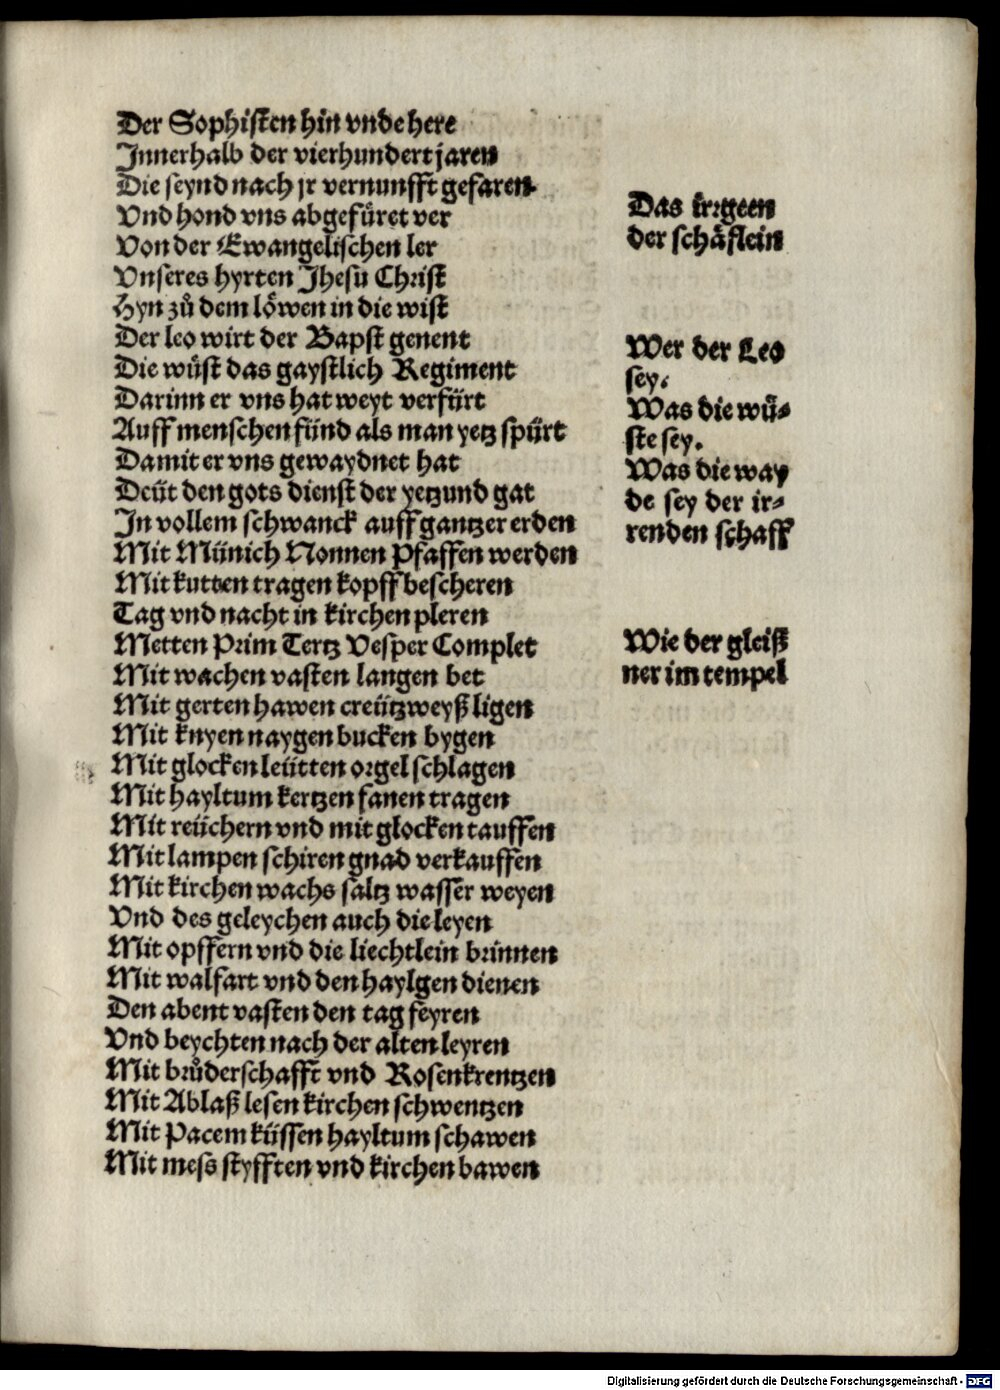 Der Sophisten hin vnde here
Innerhalb der vierhundert jaren
Die seynd nach jr vernunfft gefaren
Vnd hond vns abgefüret ver
Von der Ewangelischen ler
Vnseres hyrten Jhesu Christ
Hyn zů dem löwen in die wist
Der leo wirt der Bapst genent
Die wüst das gaystlich Regiment
Darinn er vns hat weyt verfürt
Auff menschen fünd als man yetz spürt
Damit er vns gewaydnet hat
Deüt den gots dienst der yetzund gat
In vollem schwanck auff gantzer erden
Mit Münich Nonnen Pfaffen werden
Mit kutten tragen kopff bescheren
Tag vnd nacht in kirchen pleren
Metten Prim Tertz Vesper Complet
Mit wachen vasten langen bet
Mit gerten hawen creützweyß ligen
Mit knyen naygen bucken bygen
Mit glocken leütten orgel schlagen
Mit hayltum kertzen fanen tragen
Mit reüchern vnd mit glocken tauffen
Mit lampen schiren gnad verkauffen
Mit kirchen wachs saltz wasser weyen
Vnd des geleychen auch die leyen
Mit opffern vnd die liechtlein brinnen
Mit walfart vnd den haylgen dienen
Den abent vasten den tag feyren
Vnd beychten nach der alten leyren
Mit brůderschafft vnd Rosenkrentzen
Mit Ablaß lesen kirchen schwentzen
Mit Pacem küssen hayltum schawen
Mit mess styfften vnd kirchen bawen
Das irrgeen
der schäflein
Wer der Leo
sey.
Was die wü-
ste sey.
Was die way
de sey der ir-
renden schaff
Wie der gleiß
ner im tempel
Digitalisierung gefördert durch die Deutsche Forschungsgemeinschaft - DFG